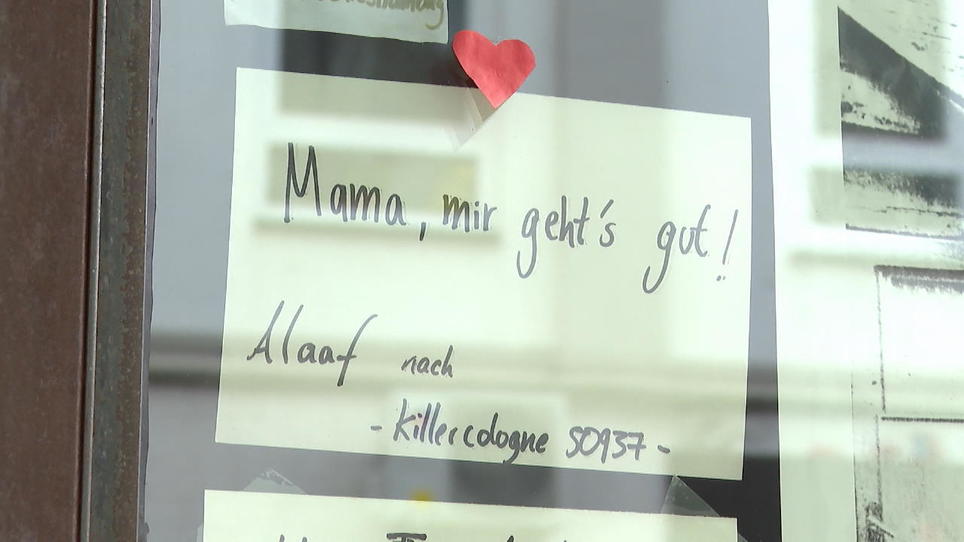 Mama, mir geht's gut!
Alaaf nach
- Killercologne 50937 -